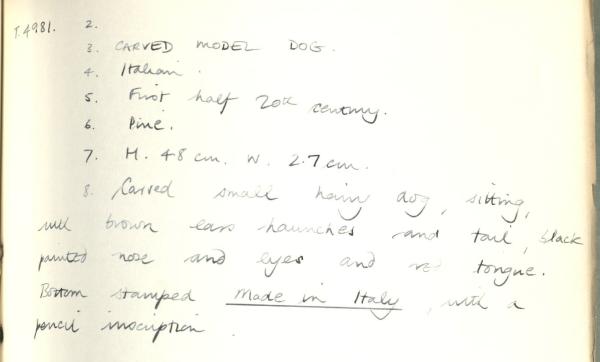 T.4981. 2.
3. CARVED MODEL DOG.
4. Italian.
5. First half 20th century.
6. Pine.
7. H. 48 cm. W. 2.7 cm.
8. Carved small hairy dog, sitting,
with brown ears haunches and tail, black
painted nose and eyes and red tongue.
Bottom stamped Made in Italy, with a
pencil inscription.